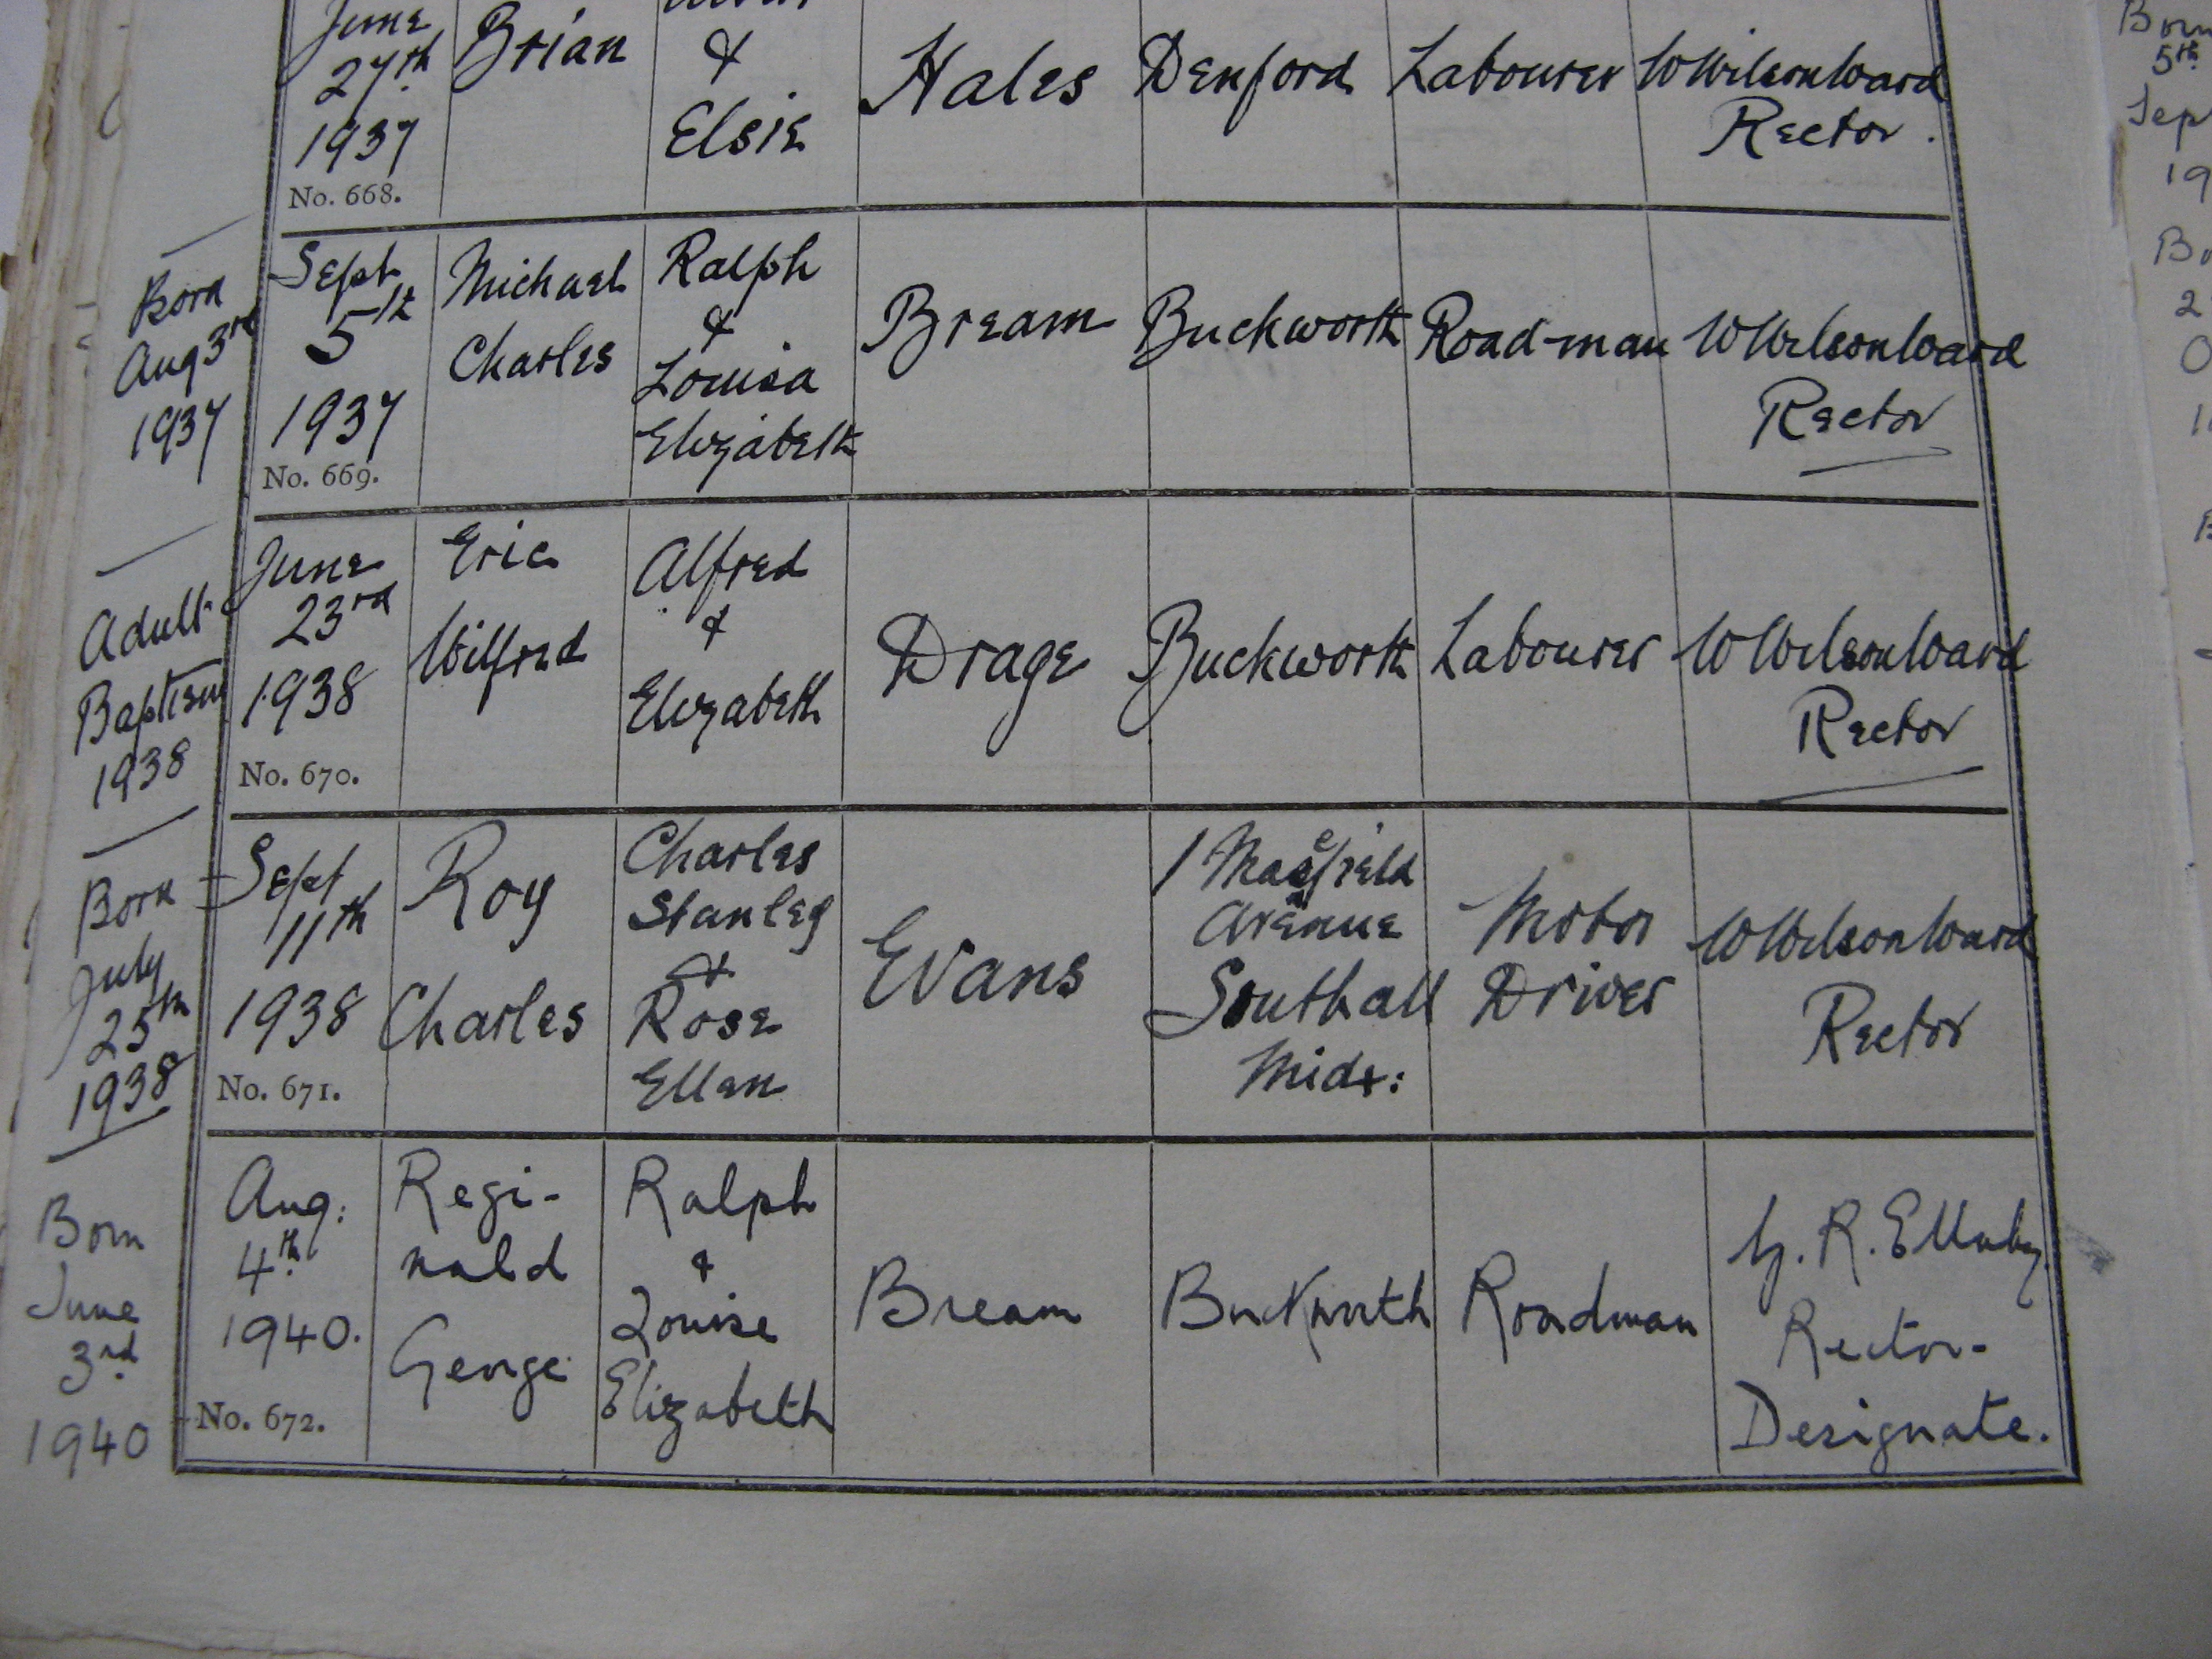 June
27th
1937
No. 668.
Brian
&
Elsie
Hales
Denford
Labourer
W Wilson Ward
Rector.
Born
Aug 3rd
1937
Sept
5th
1937
No. 669.
Michael
Charles
Ralph
&
Louisa
Elizabeth
Bream
Buckworth
Road-man
W Wilson Ward
Rector
Adult
Baptism
1938
June
23rd
1938
No. 670.
Eric
Wilfred
Alfred
&
Elizabeth
Drage
Buckworth
Labourer
W Wilson Ward
Rector
Born
July
25th
1938
Sept
11th
1938
No. 671.
Roy
Charles
Charles
Stanley
&
Rose
Ellen
Evans
1
Avenue
Southall
Midx:
Motor
Driver
W Wilson Ward
Rector
Born
June
3rd
1940
Aug:
4th
1940.
No. 672.
Regi-
nald
George
Ralph
&
Louise
Elizabeth
Bream
Buckworth
Roadman
R. Ellaby
Rector-
Designate.
Born
5th
Sep
19
2